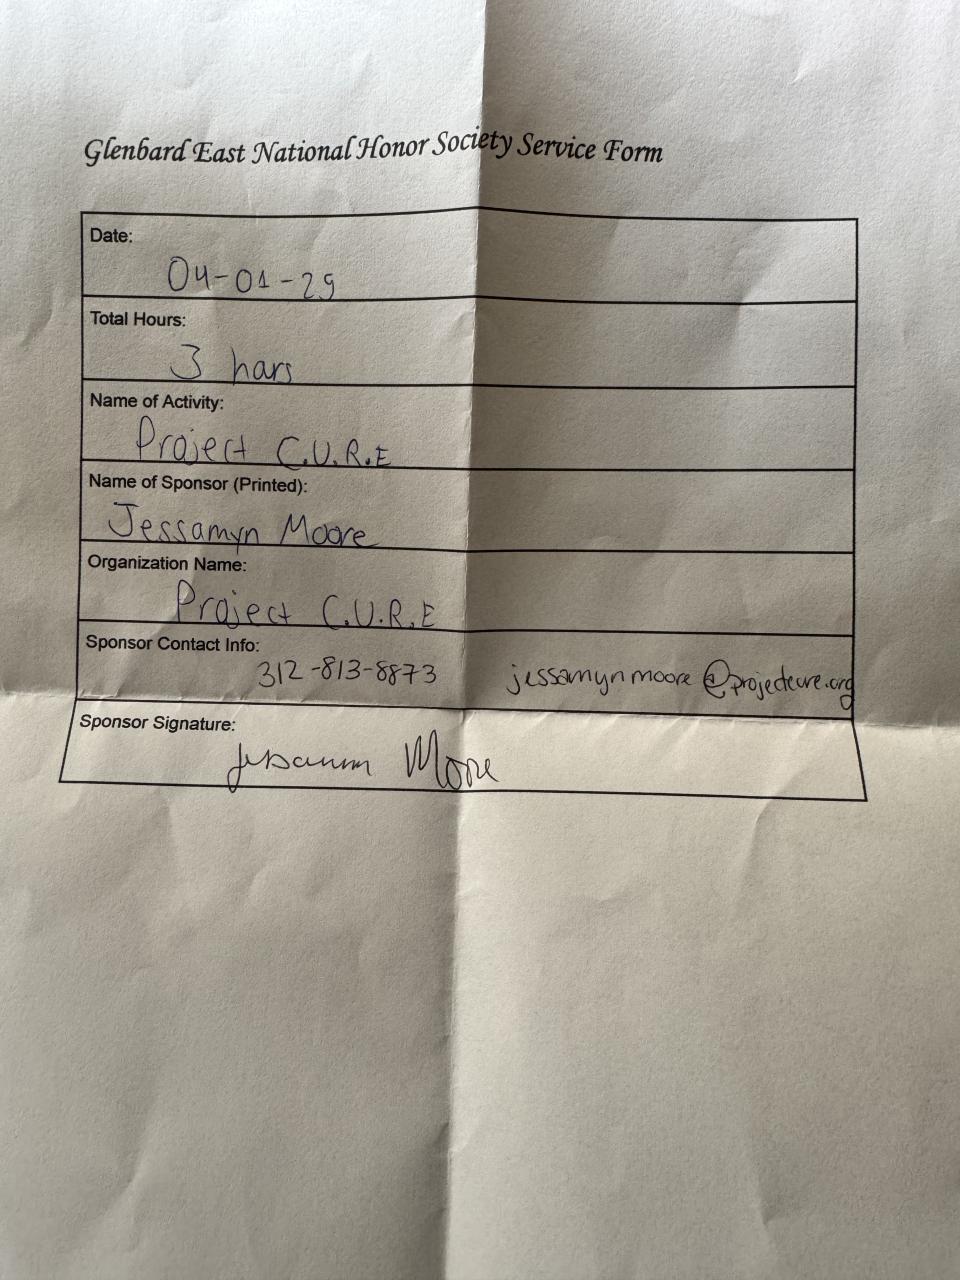 Glenbard East National Honor Society Service Form
Date:
04-01-29
Total Hours:
3 hars
Name of Activity:
Project C.U.R.E
Name of Sponsor (Printed):
Jessamyn Moore
Organization Name:
Project C.U.R.E
Sponsor Contact Info:
312-813-8873 jessamynmoore@projectcure.org
Sponsor Signature:
Jessamyn Moore